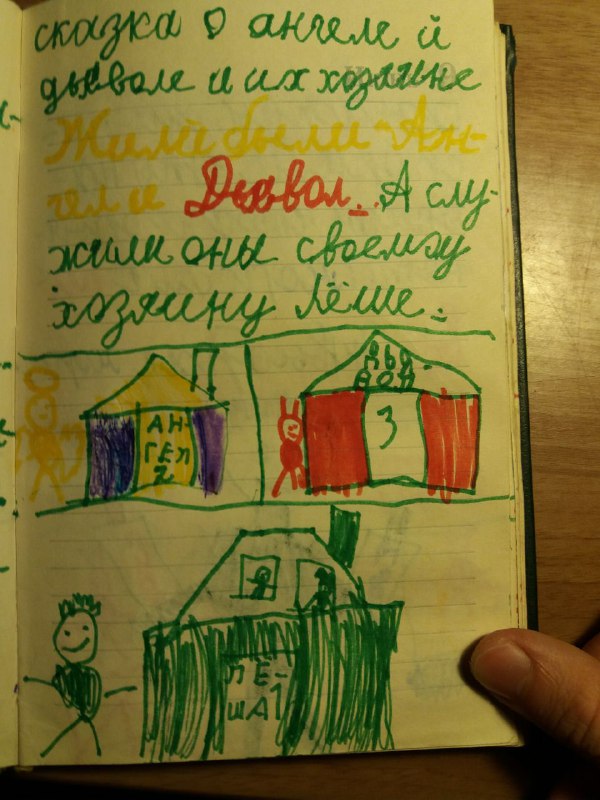 сказка о ангеле и
дьяволе и их хозяине
Жили были Ан-
гел и Дьявол. А слу-
жили оны своему
хозяину Лёше.
АН-
ГЕЛ
2
ДЬЯ
ВОЛ
3
ЛЁ-
ША1